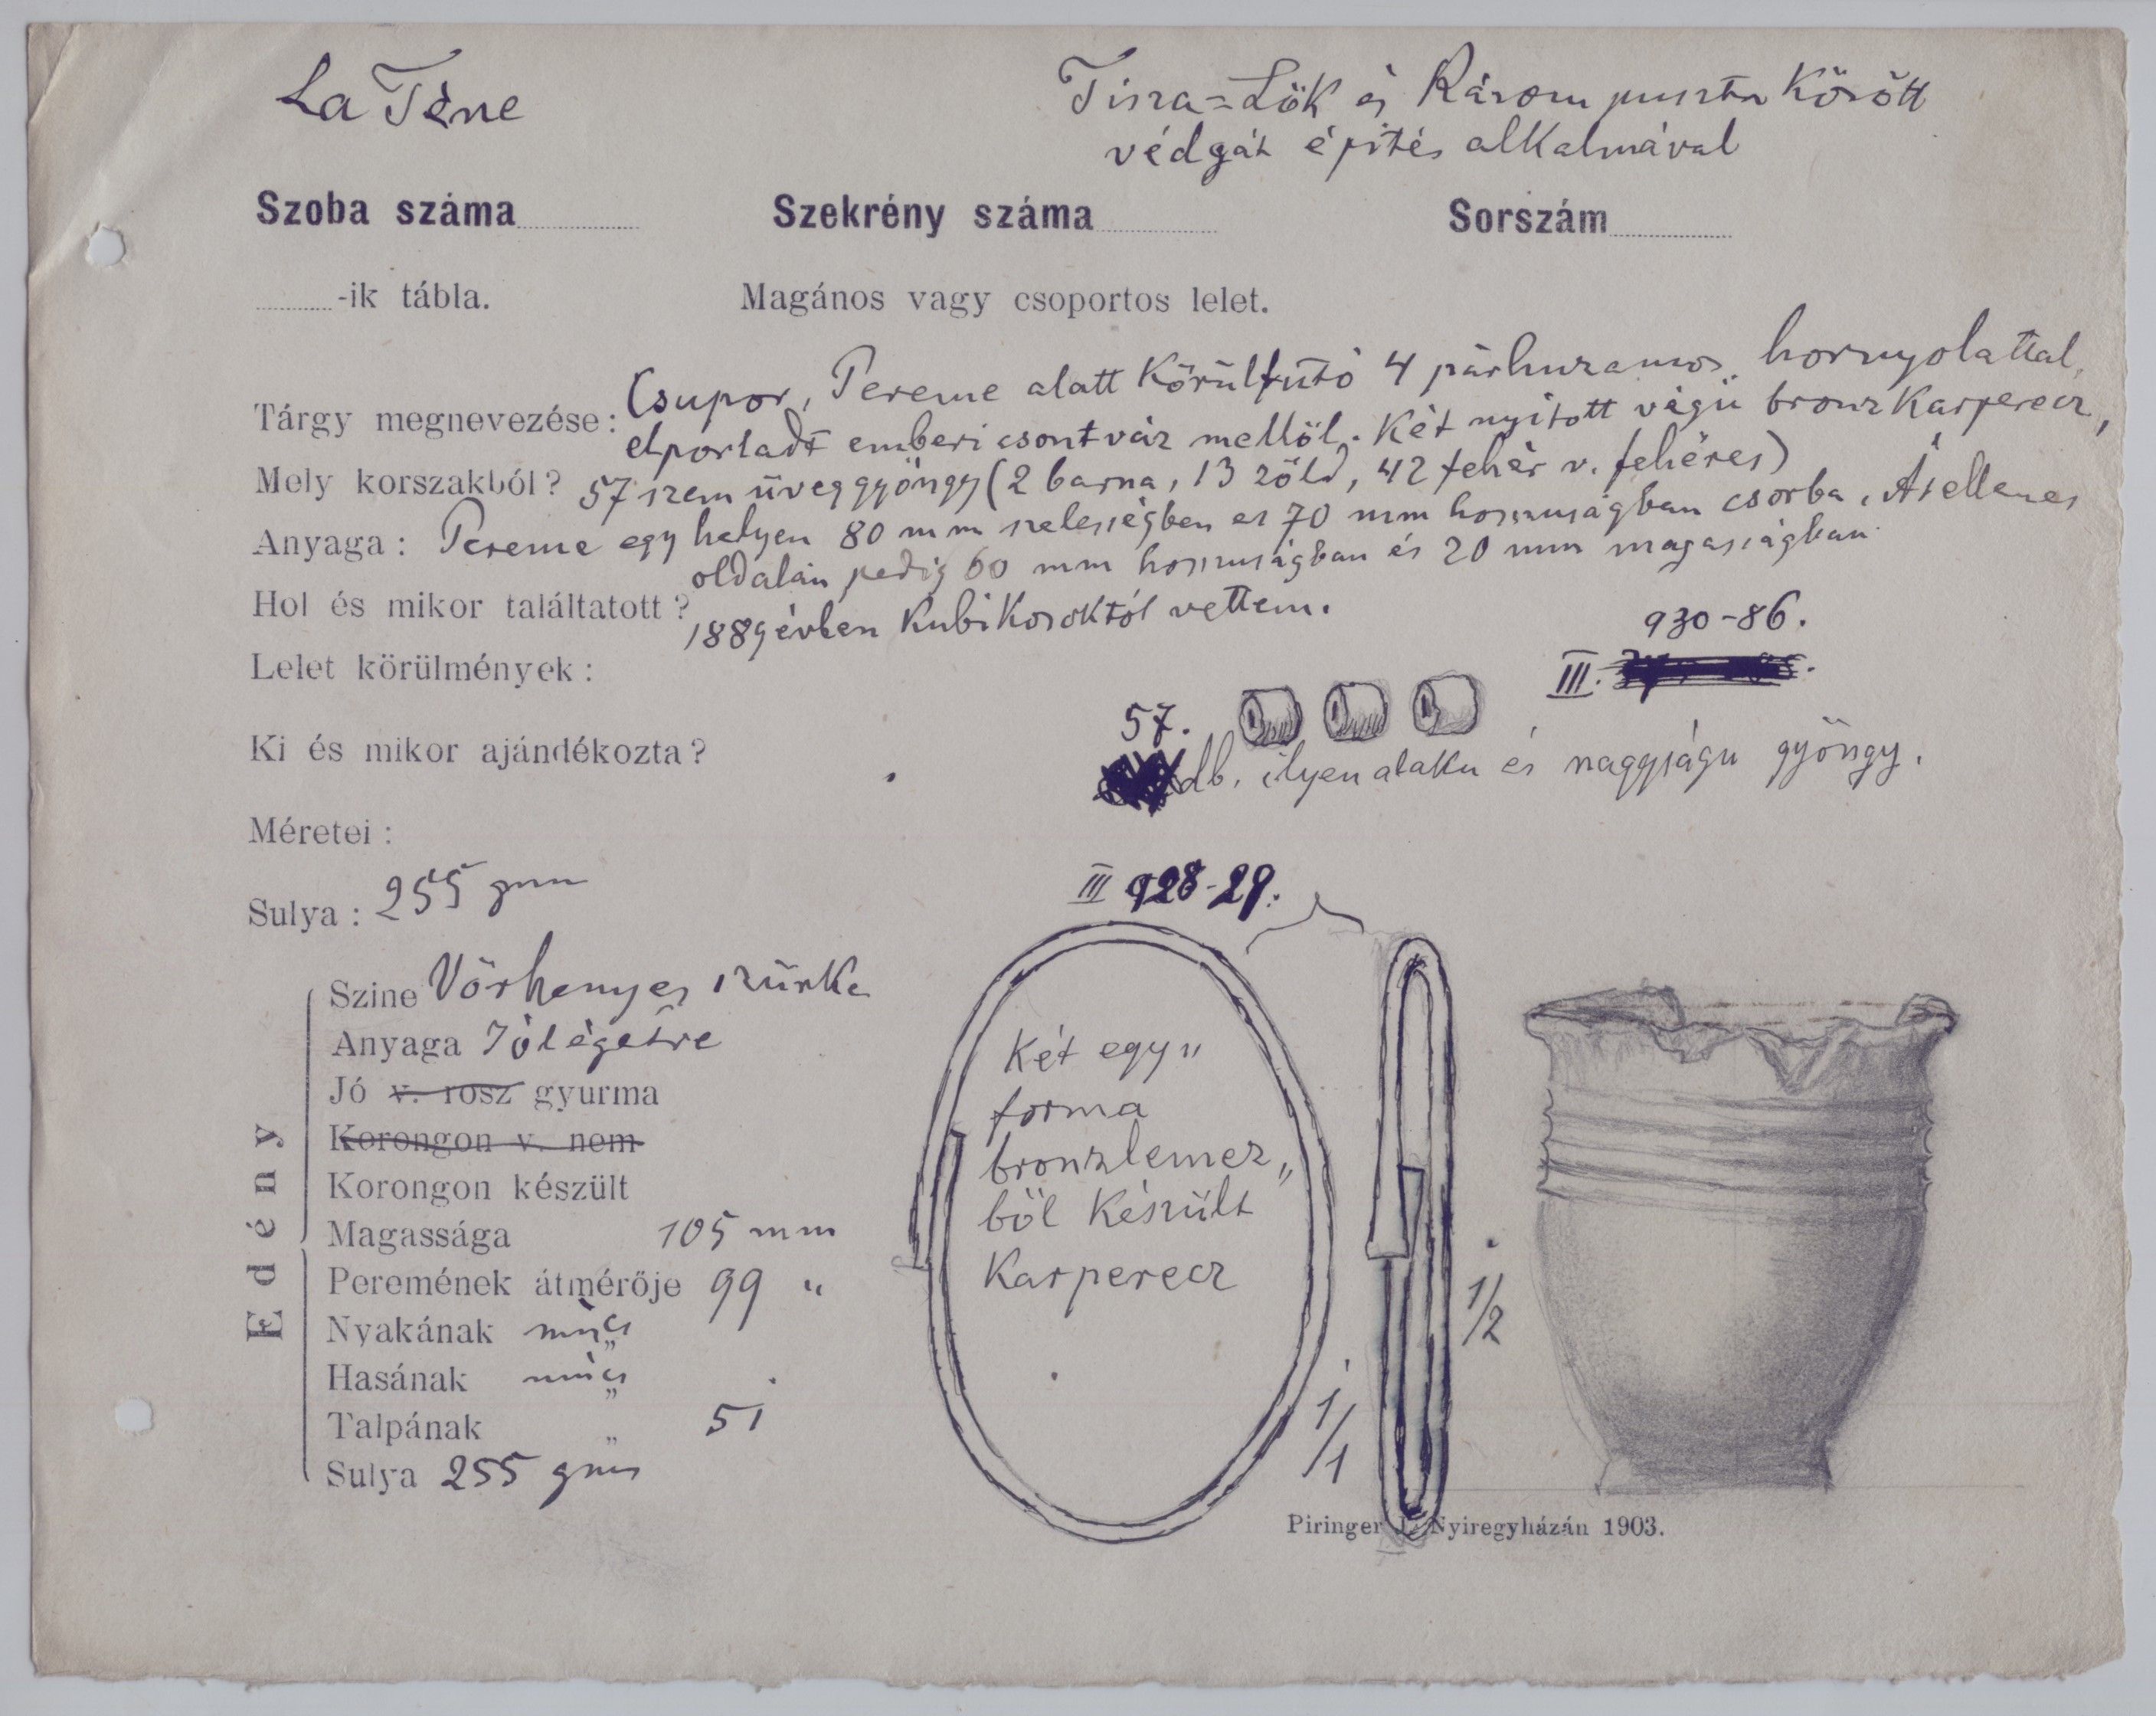 La Tène
Tisza=Lök és Rázom puszta között
védgát épités alkalmával
Szoba száma
Szekrény száma
Sorszám
-ik tábla.
Magános vagy csoportos lelet.
Tárgy megnevezése: Csupor, Pereme alatt körülfutó 4 párhuzamos hornyolattal,
elporladt emberi csontváz mellöl. Két nyitott végü bronz karperecz,
Mely korszakból? 57 szem üveggyöngy (2 barna, 13 zöld, 42 fehér v. fehéres)
Anyaga: Pereme egy helyen 80 mm szelességben es 70 mm hosszuságban csorba, Átellenes
oldalán pedig 60 mm hosszuságban és 20 mm magasságban
Hol és mikor találtatott?
1889 évben Kubikosoktól vettem.
930-86.
III.
Lelet körülmények:
57.
Ki és mikor ajándékozta?
db. ilyen alaku és nagyságu gyöngy.
Méretei:
Sulya: 255 gmm
III 928-29.
Edény
Szine Vörhenyes szürke
Anyaga Jól égetve
Jó v. rosz gyurma
Korongon v. nem
Korongon készült
Magassága 105 mm
Peremének átmérője 99 "
Nyakának nincs "
Hasának nincs "
Talpának " 51
Sulya 255 gmm
Két egy"
forma
bronzlemez"
böl készült
Karperecz
1/1
1/2
Piringer J. Nyiregyházán 1903.